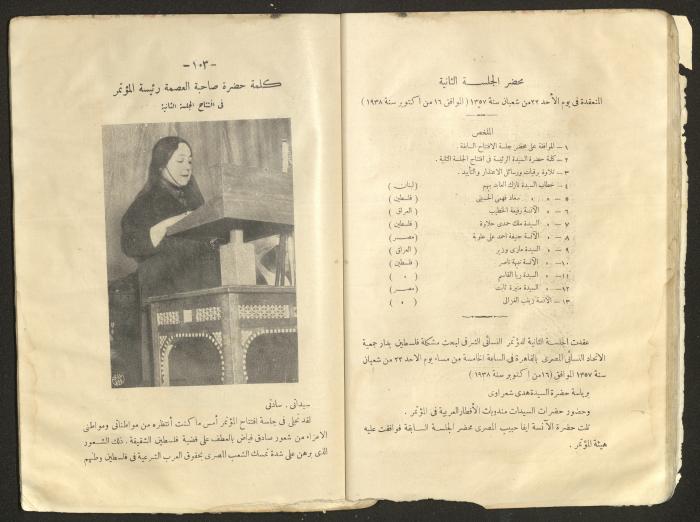 محضر الجلسة الثانية
المنعقدة فى يوم الأحد ٢٢ من شعبان سنة ١٣٥٧ (الموافق ١٦ من أكتوبر سنة ١٩٣٨)
الملخص
١ – الموافقة على محضر جلسة الافتتاح السابقة .
٢ – كلمة حضرة السيدة الرئيسة فى افتتاح الجلسة الثانية .
٣ – تلاوة برقيات ورسائل الاعتذار والتأييد .
٤ – خطاب السيدة نازك العابد بيهم ( لبنان )
٥ – » » سعاد فهمى الحسينى ( فلسطين )
٦ – » الآنسة رفيعة الخطيب ( العراق )
٧ – » السيدة ملك حمدى حلاوة ( فلسطين )
٨ – » الآنسة حنيفة احمد على علوبة ( مصر )
٩ – » السيدة مارى وزير ( العراق )
١٠ – » الآنسة نبيهة ناصر ( فلسطين )
١١ – » السيدة ريا القاسم ( » )
١٢ – » السيدة منيرة ثابت ( مصر )
١٣ – الآنسة زينب الغزالى ( » )
عقدت الجلسة الثانية للمؤتمر النسائى الشرقى لبحث مشكلة فلسطين بدار جمعية
الاتحاد النسائى المصرى بالقاهرة فى الساعة الخامسة من مساء يوم الاحد ٢٢ من شعبان
سنة ١٣٥٧ الموافق (١٦ من أكتوبر سنة ١٩٣٨)
برياسة حضرة السيدة هدى شعراوى
وحضور حضرات السيدات مندوبات الأقطار العربية فى المؤتمر .
تلت حضرة الآنسة ايفا حبيب المصرى محضر الجلسة السابقة فوافقت عليه
هيئة المؤتمر .
–١٠٣–
كلمة حضرة صاحبة العصمة رئيسة المؤتمر
فى افتتاح الجلسة الثانية
سيداتى . سادتى
لقد تجلى فى جلسة افتتاح المؤتمر أمس ما كنت أنتظره من مواطناتى ومواطنى
الاعزاء من شعور صادق فياض بالعطف على قضية فلسطين الشقيقة . ذلك الشعور
الذى برهن على شدة تمسك الشعب المصرى بحقوق العرب الشرعية فى فلسطين وطنهم